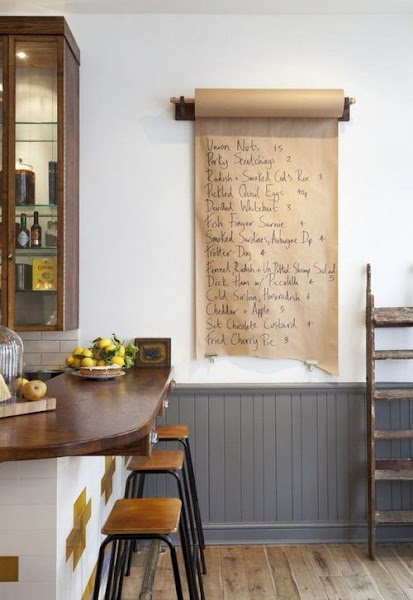 Union Nuts 1.5
Porky Scratchings 2
Radish + Smoked Cod's Roe 3
Pickled Quail Eggs 90p
Devilled Whitebait 3
Fish Finger Sarnie 4
Smoked Sardines, Aubergine Dip 4
Trotter Dog 4
Fennel, Radish + Potted Shrimp Salad 5
Duck Ham w/ Piccalilli 4
Cold Sirloin, Horseradish 4
Cheddar + Apple 5
Set Chocolate Custard 4
Fried Cherry Pie 3